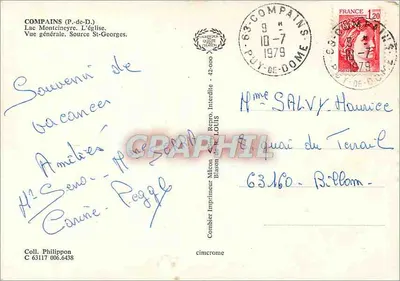 COMPAINS (P.-de-D.)
Lac Montcineyre. L'église.
Vue générale. Source St-Georges.
63-COMPAINS
9 H
10-7
1979
PUY-DE-DOME
FRANCE
1,20
63-COMPAINS
1979
PUY-DE-DOME
Souvenir de
vacances
Amitiés
Carine Peggy
CARAPHIL
Mme SALVY Maurice
Quai du Travail
63160 - Billom
Combier Imprimeur Mâcon
Repro. Interdite - 42-000
cimcrome
Coll. Philippon
C 63117 006.6438